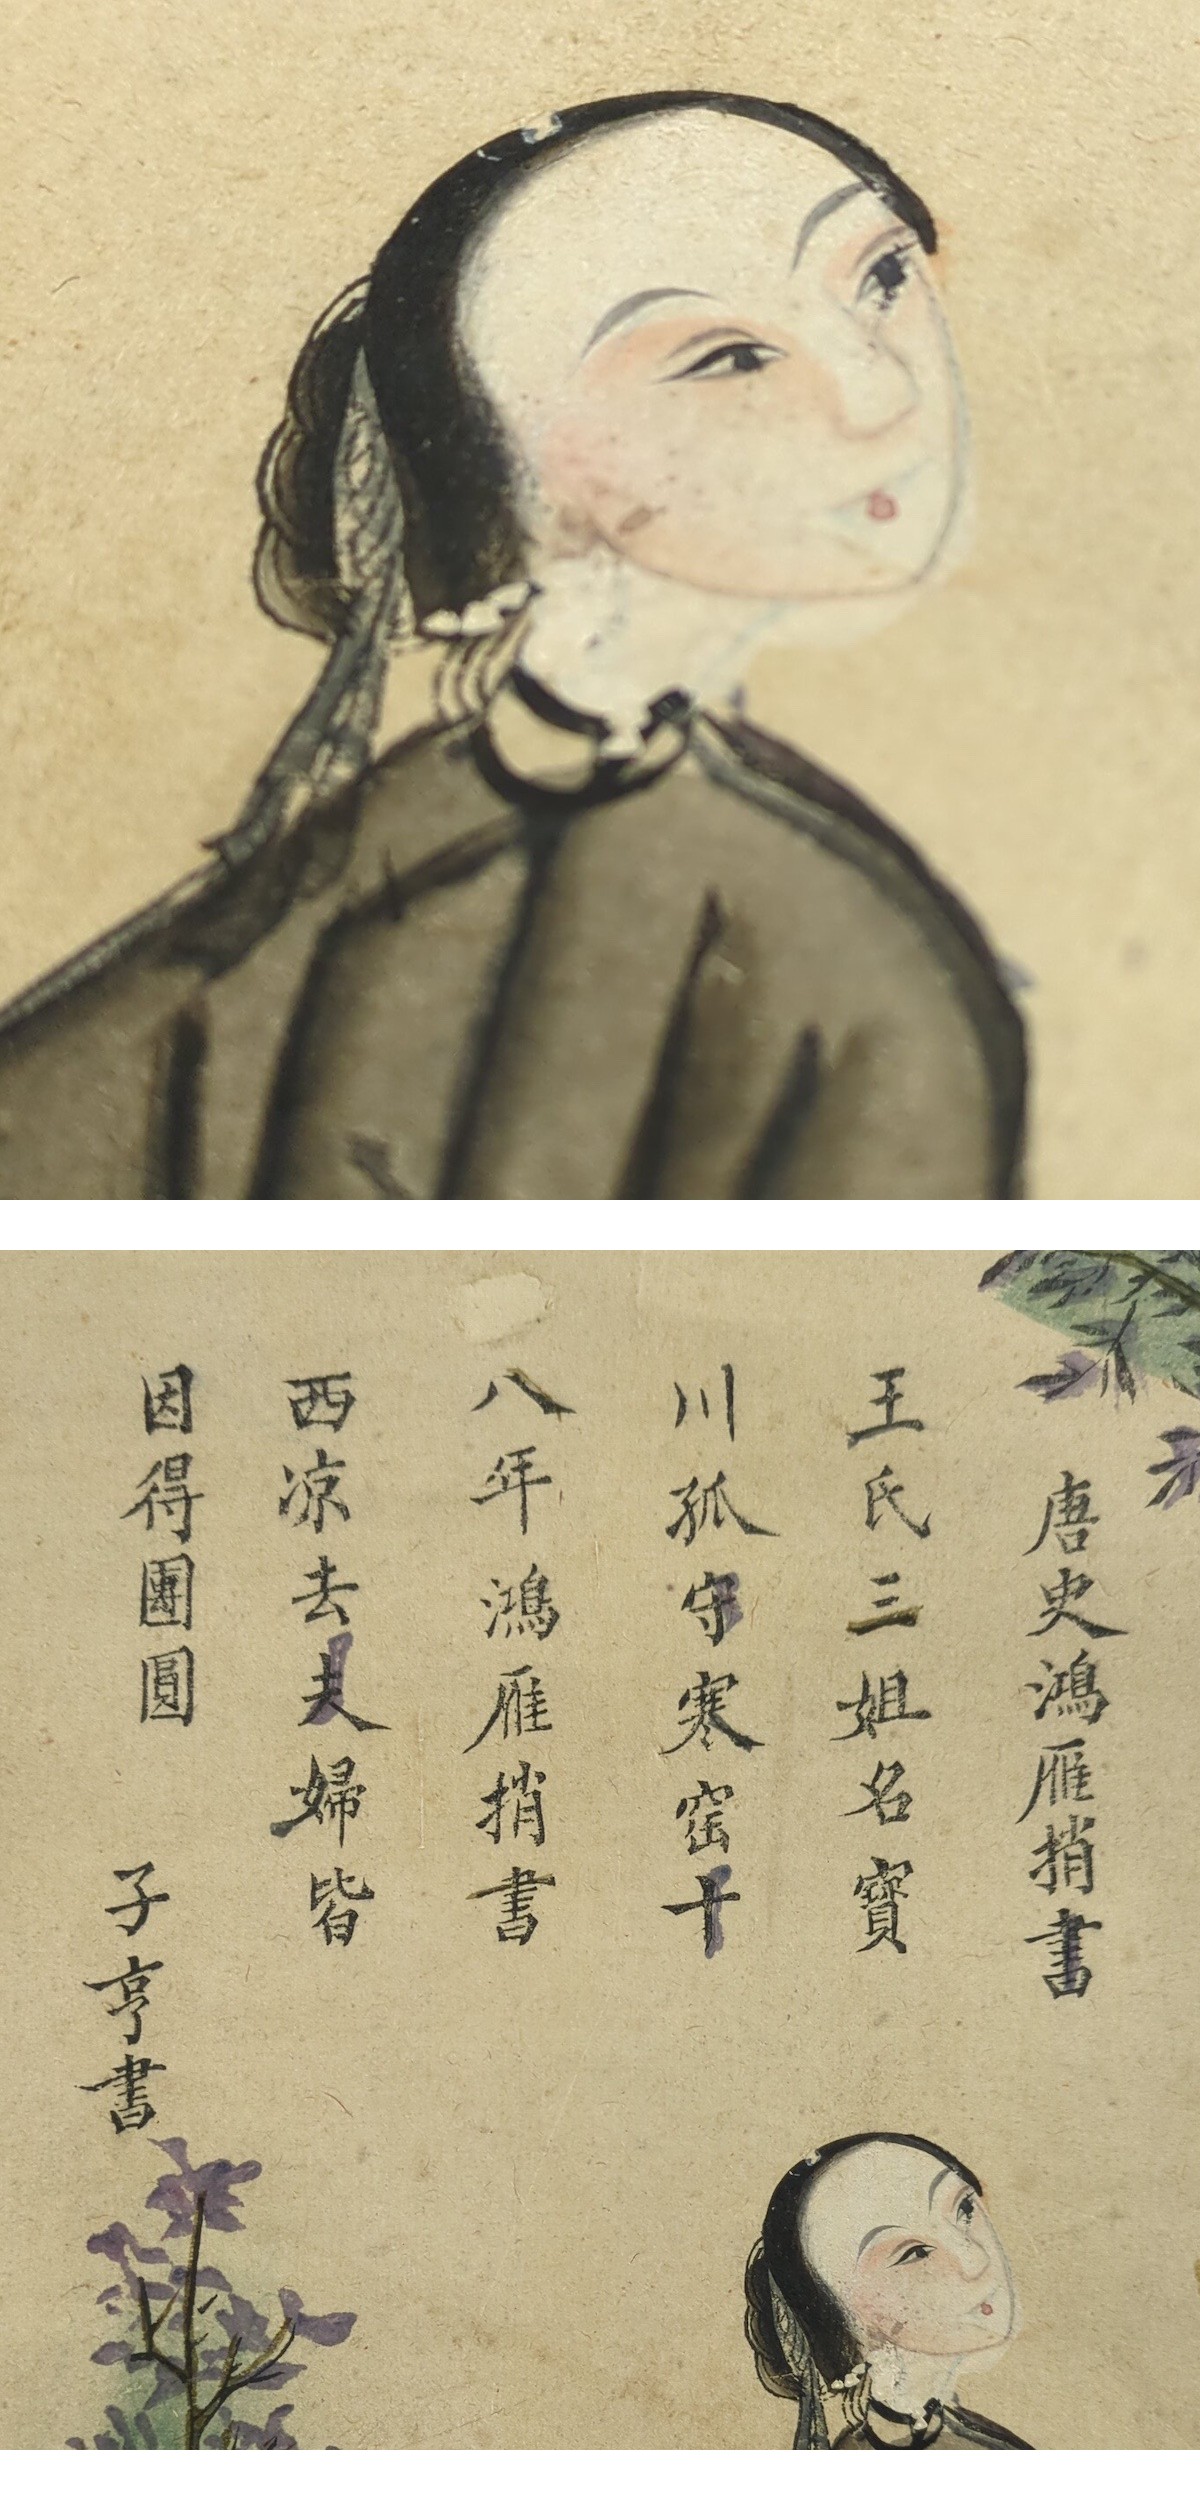 唐史鴻雁捎書
王氏三姐名寶
川孤守寒窑十
八年鴻雁捎書
西凉去夫婦皆
因得團圓
子亨書